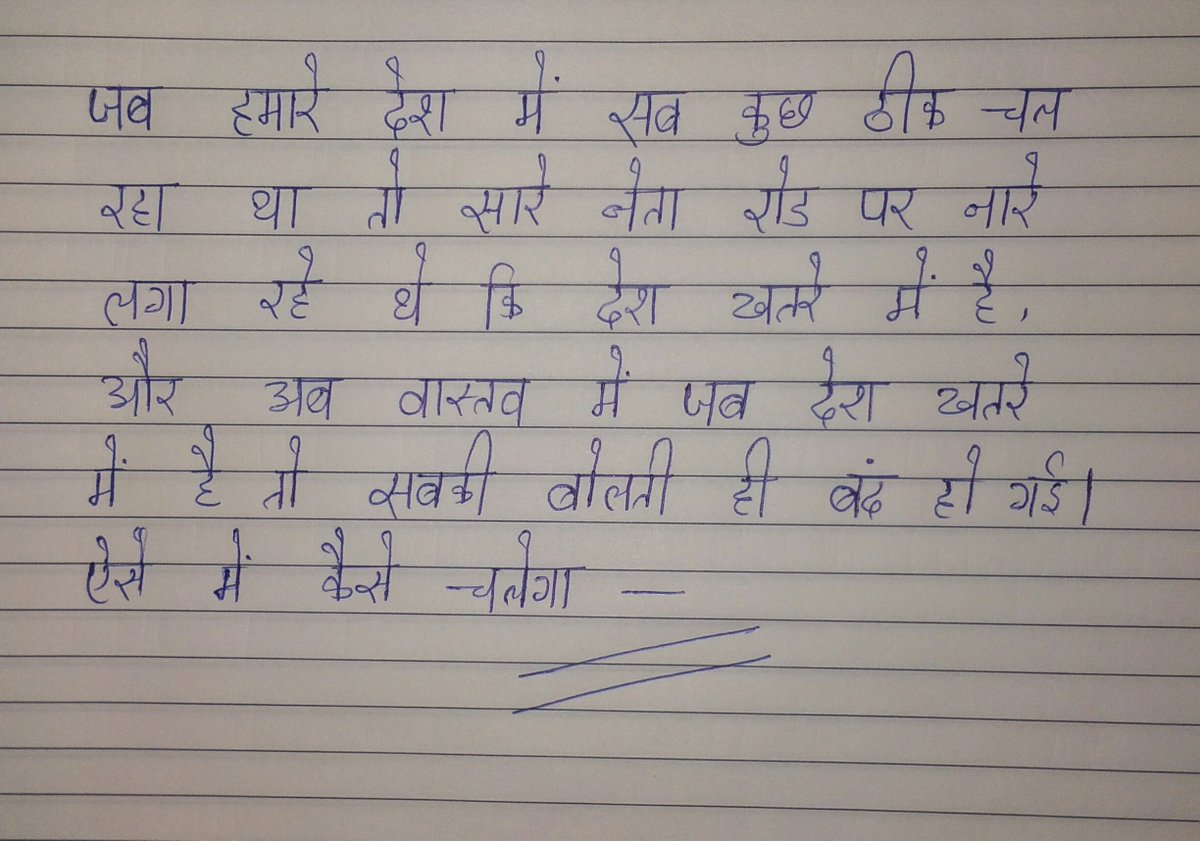 जब हमारे देश में सब कुछ ठीक चल
रहा था तो सारे नेता रोड पर नारे
लगा रहे थे कि देश खतरे में है,
और अब वास्तव में जब देश खतरे
में है तो सबकी बोलती ही बंद हो गई।
ऐसे में कैसे चलेगा —